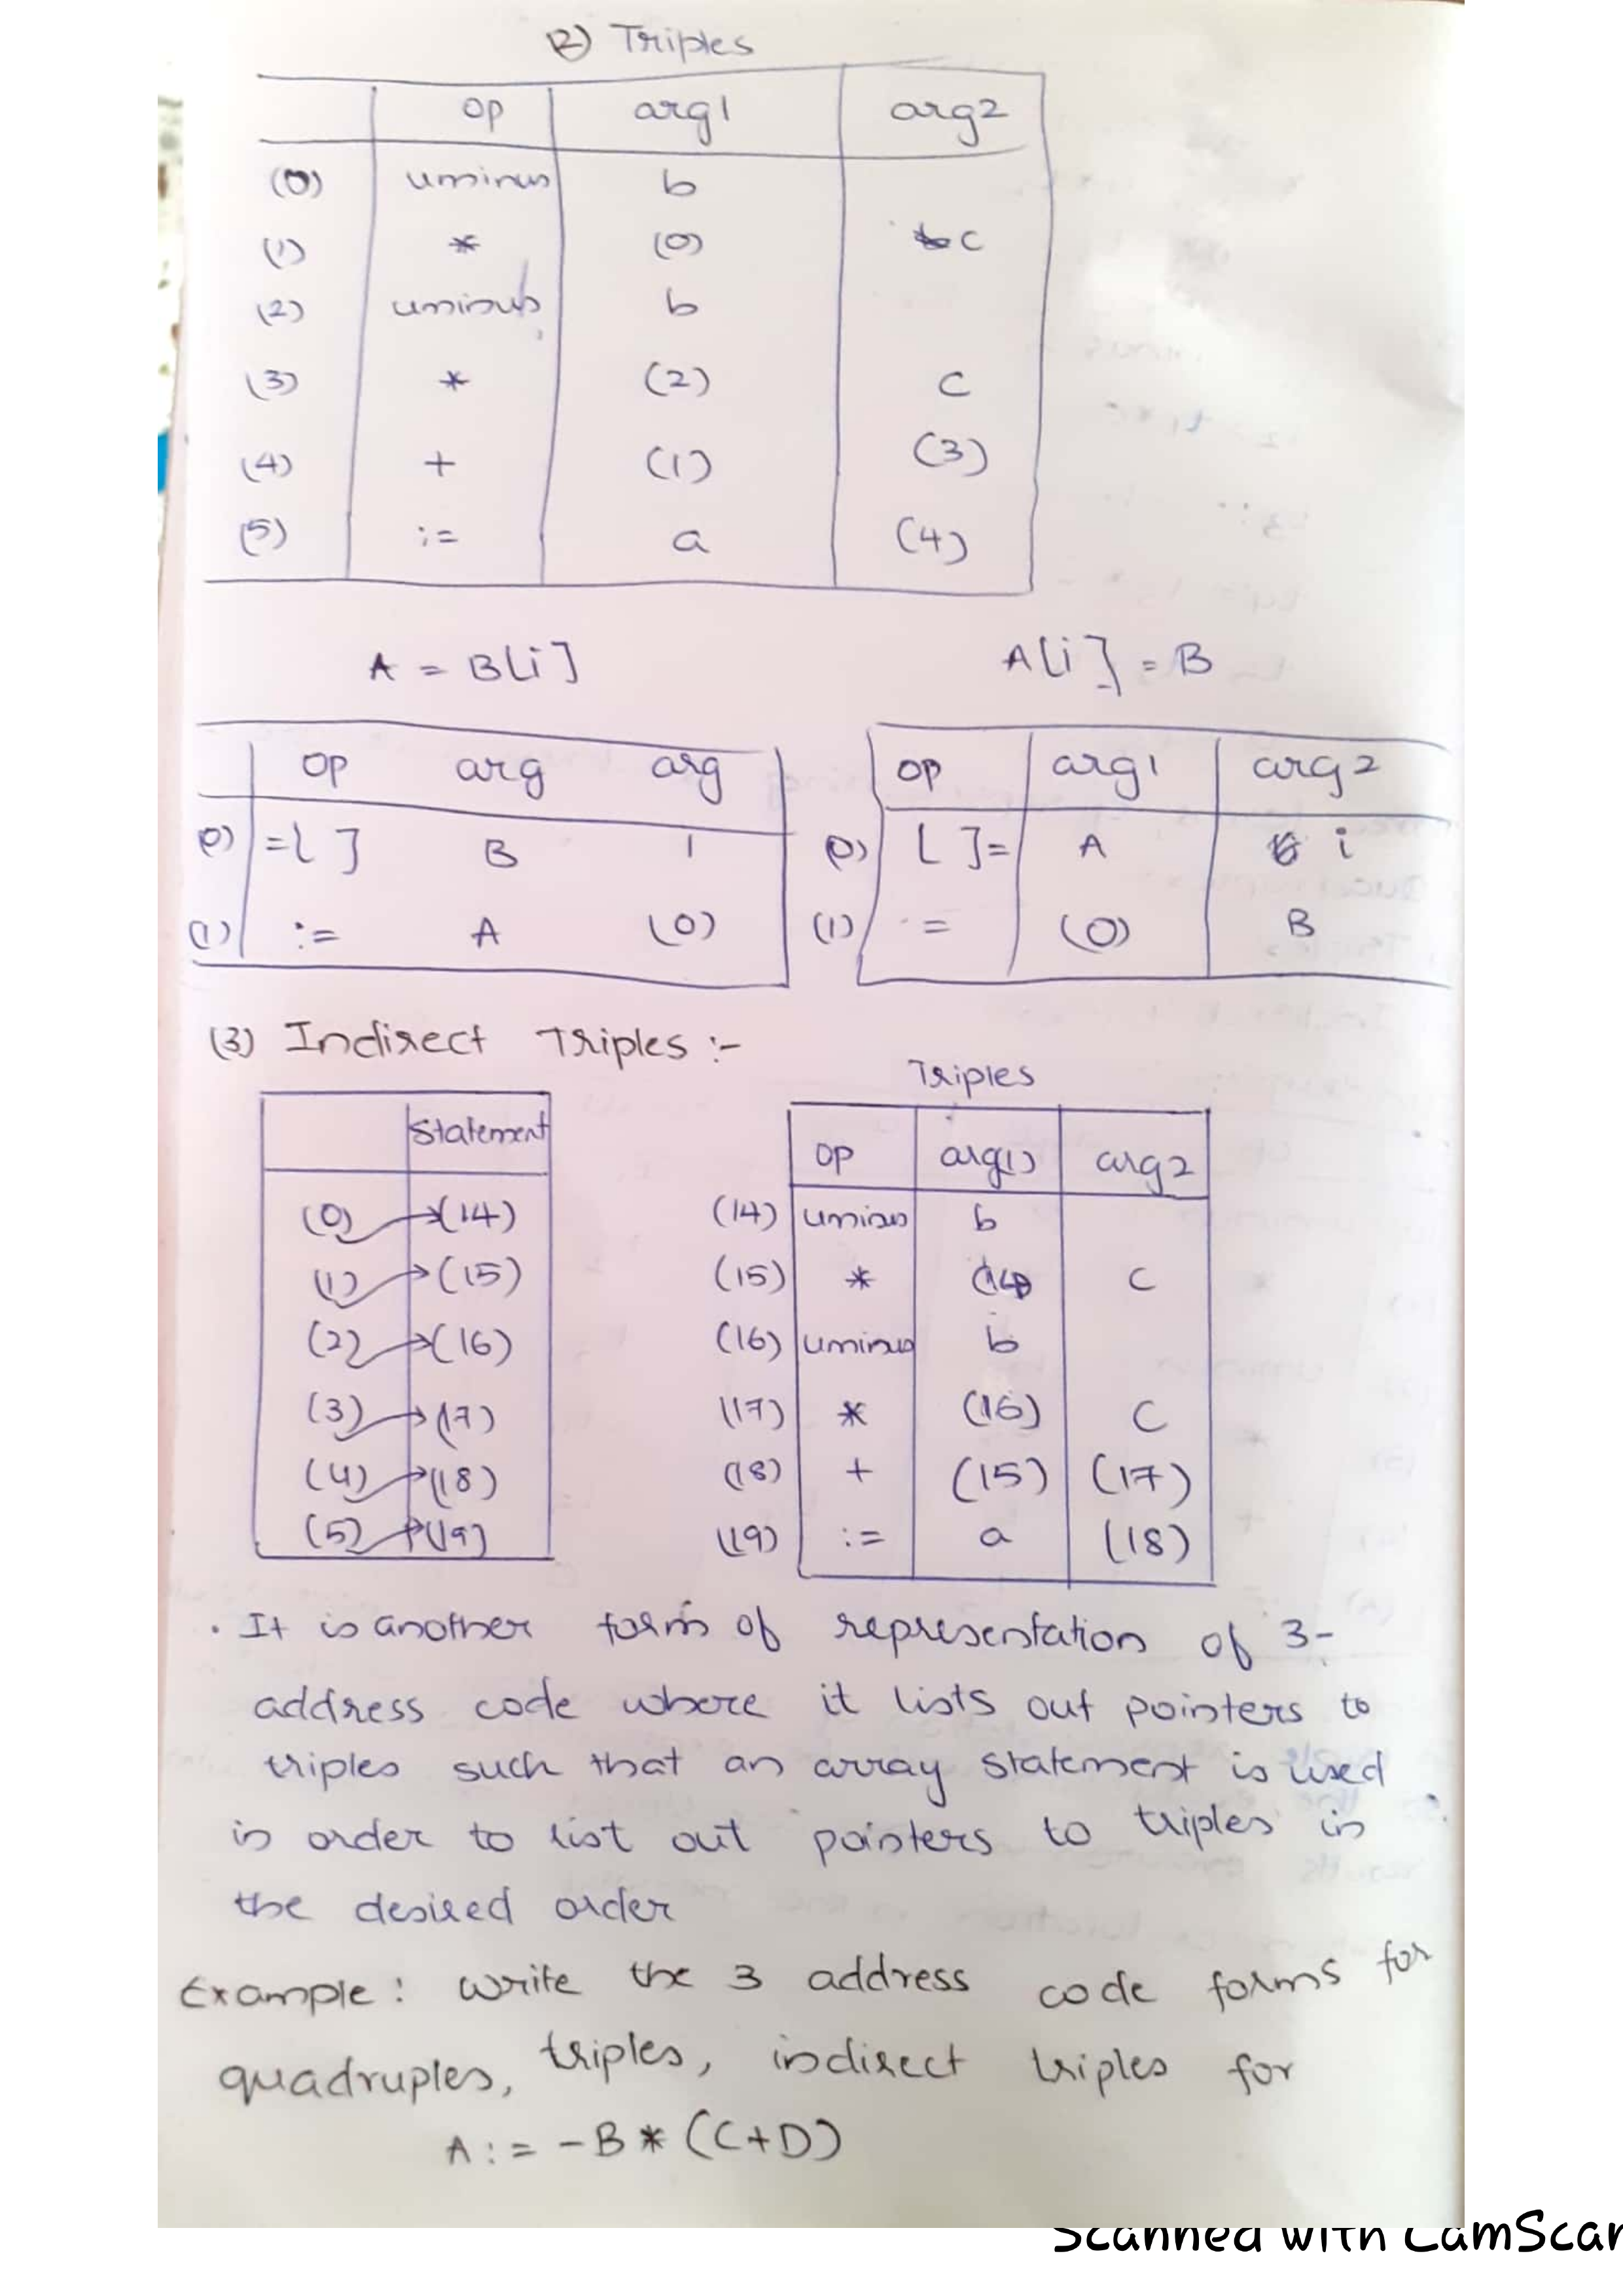 2) Triples
op arg1 arg2
(0) uminus b
(1) * (0) c
(2) uminus b
(3) * (2) c
(4) + (1) (3)
(5) := a (4)
A = B[i] A[i] = B
op arg arg op arg1 arg2
(0) =[ ] B i (0) [ ]= A i
(1) := A (0) (1) := (0) B
(3) Indirect Triples :-
Triples
Statement op arg(1) arg2
(0) (14) (14) uminus b
(1) (15) (15) * (14) c
(2) (16) (16) uminus b
(3) (17) (17) * (16) C
(4) (18) (18) + (15) (17)
(5) (19) (19) := a (18)
. It is another form of representation of 3-
address code where it lists out pointers to
triples such that an array statement is used
in order to list out pointers to triples in
the desired order
Example: write the 3 address code forms for
quadruples, triples, indirect triples for
A := -B * (C+D)
Scanned with CamScan